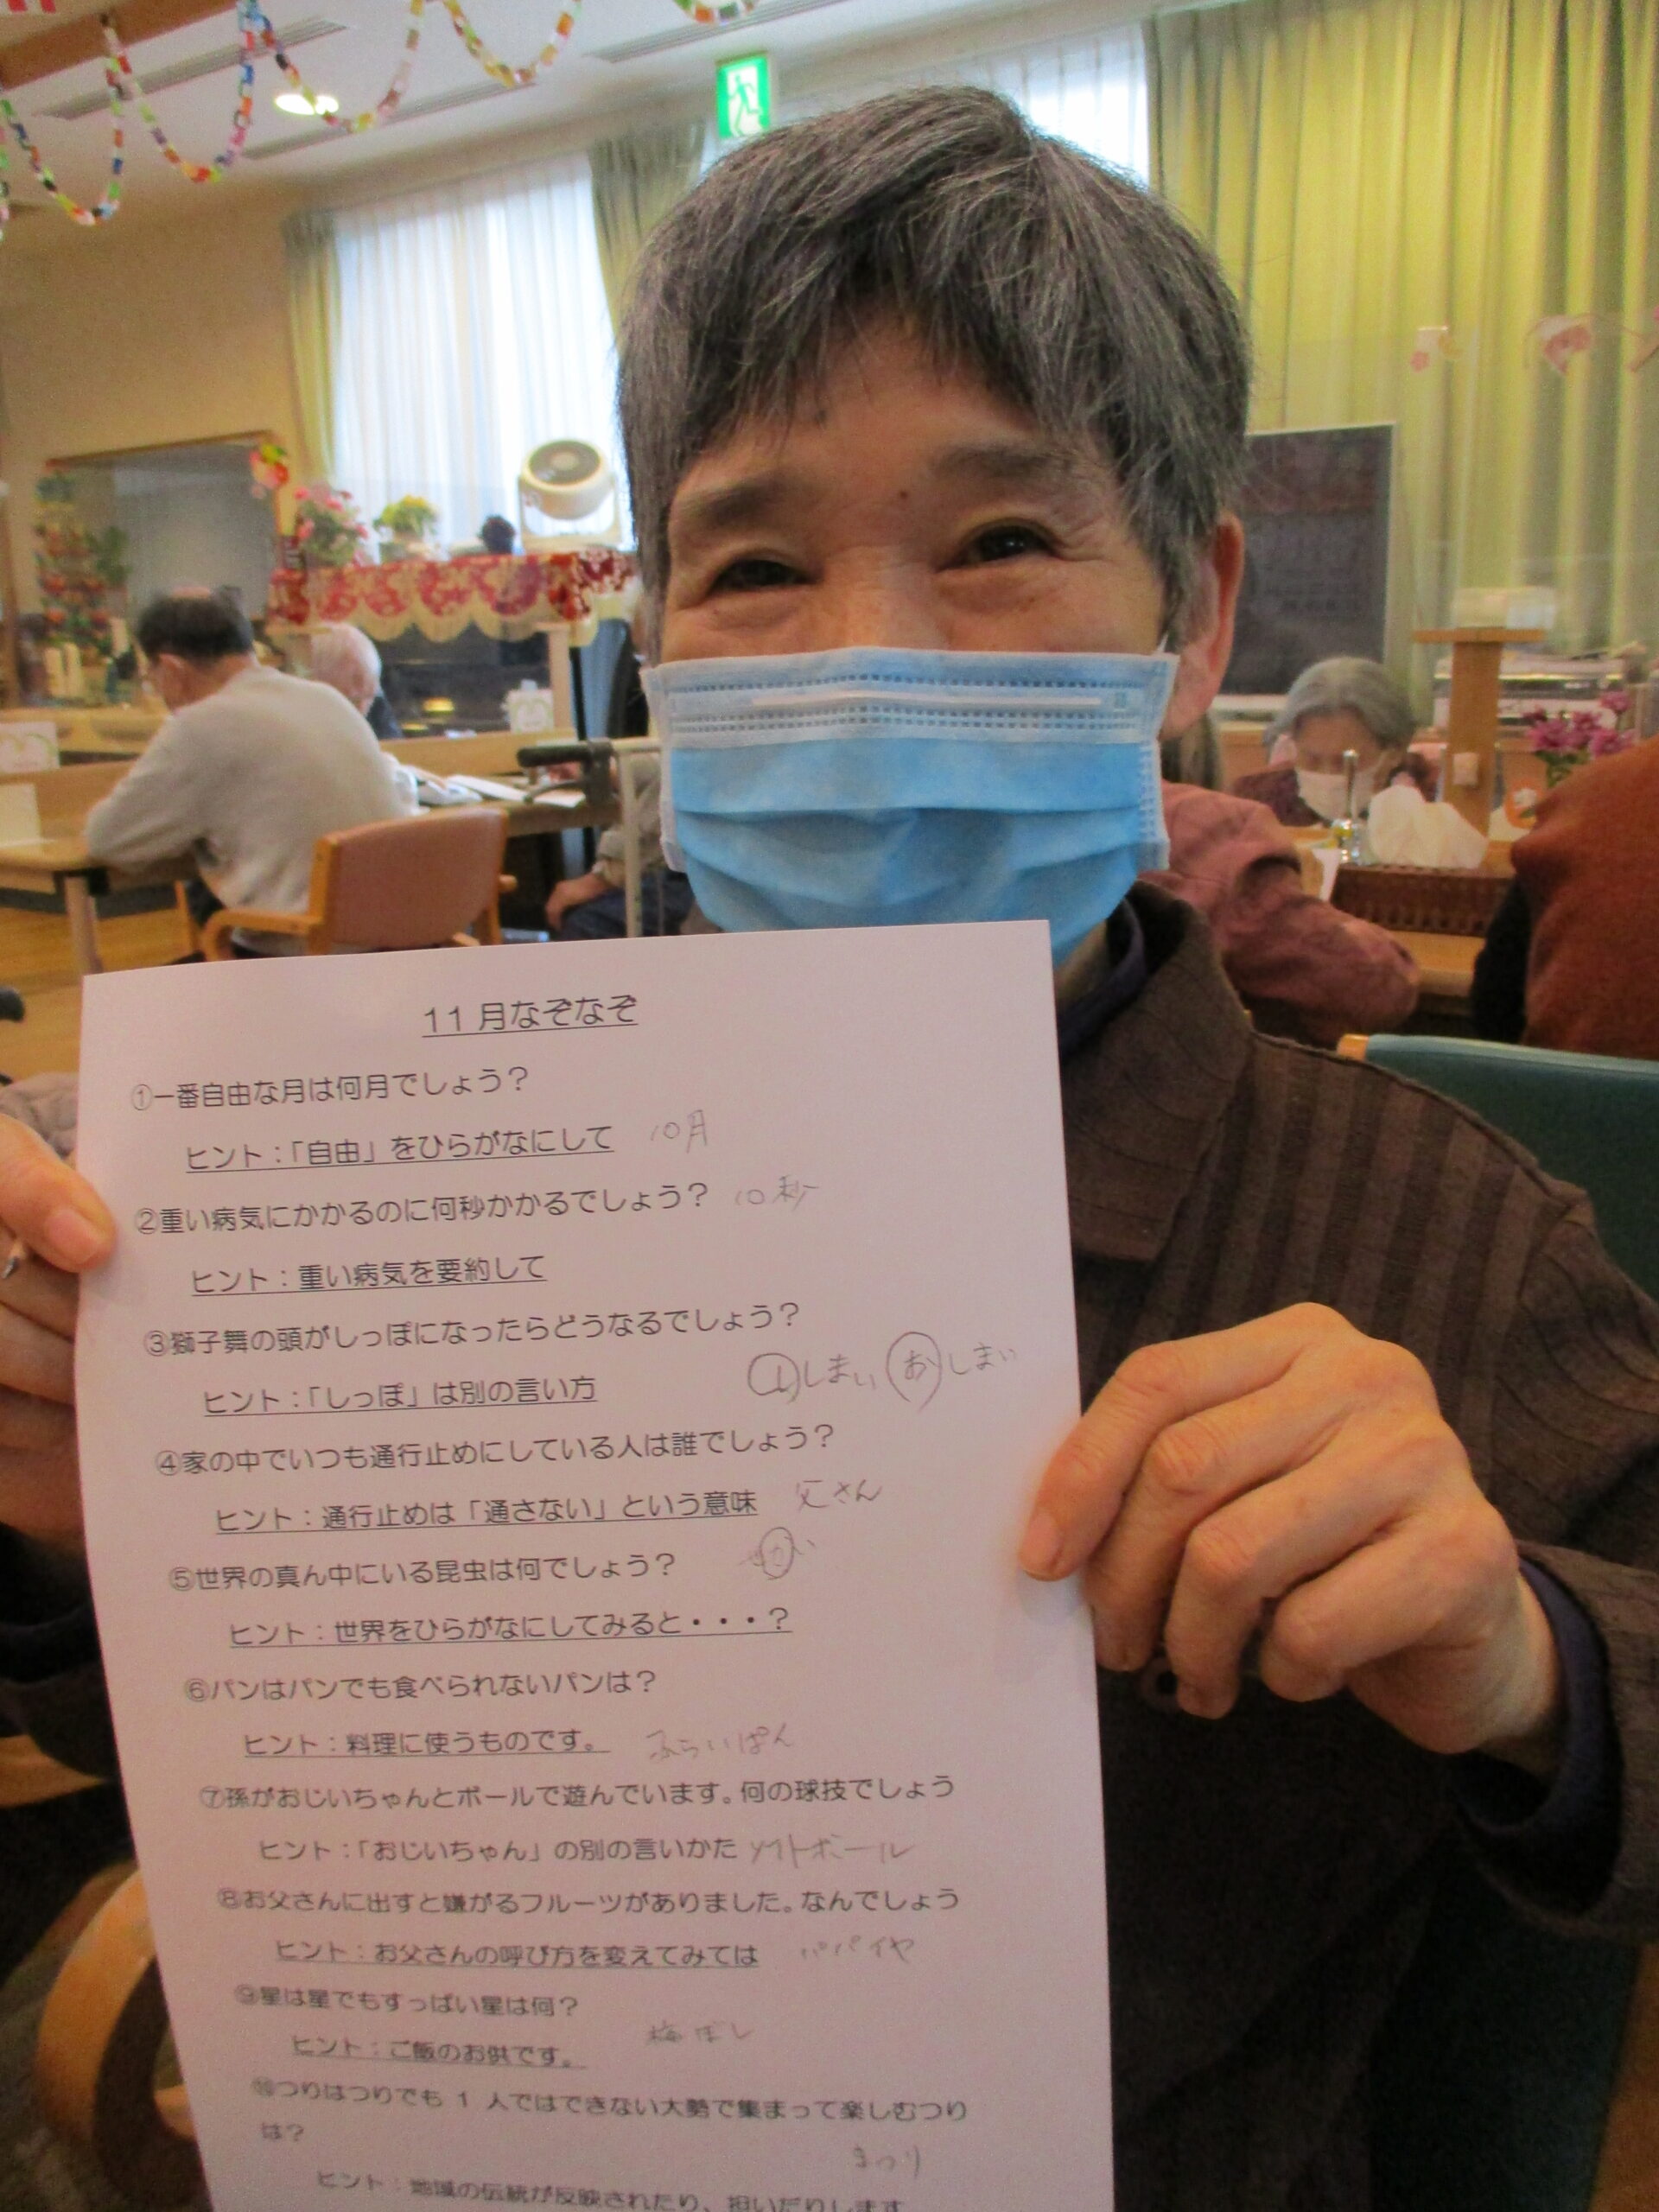 11月なぞなぞ
①一番自由な月は何月でしょう？
ヒント：「自由」をひらがなにして 10月
②重い病気にかかるのに何秒かかるでしょう？ 10秒
ヒント：重い病気を要約して
③獅子舞の頭がしっぽになったらどうなるでしょう？
ヒント：「しっぽ」は別の言い方 ししまい おしまい
④家の中でいつも通行止めにしている人は誰でしょう？
ヒント：通行止めは「通さない」という意味 父さん
⑤世界の真ん中にいる昆虫は何でしょう？ せかい
ヒント：世界をひらがなにしてみると・・・？
⑥パンはパンでも食べられないパンは？
ヒント：料理に使うものです。 ふらいぱん
⑦孫がおじいちゃんとボールで遊んでいます。何の球技でしょう
ヒント：「おじいちゃん」の別の言いかた ソフトボール
⑧お父さんに出すと嫌がるフルーツがありました。なんでしょう
ヒント：お父さんの呼び方を変えてみては パパイヤ
⑨星は星でもすっぱい星は何？
ヒント：ご飯のお供です。 梅ぼし
⑩つりはつりでも 1 人ではできない大勢で集まって楽しむつり
は？
まつり
ヒント：地域の伝統が反映されたり、担いだりします